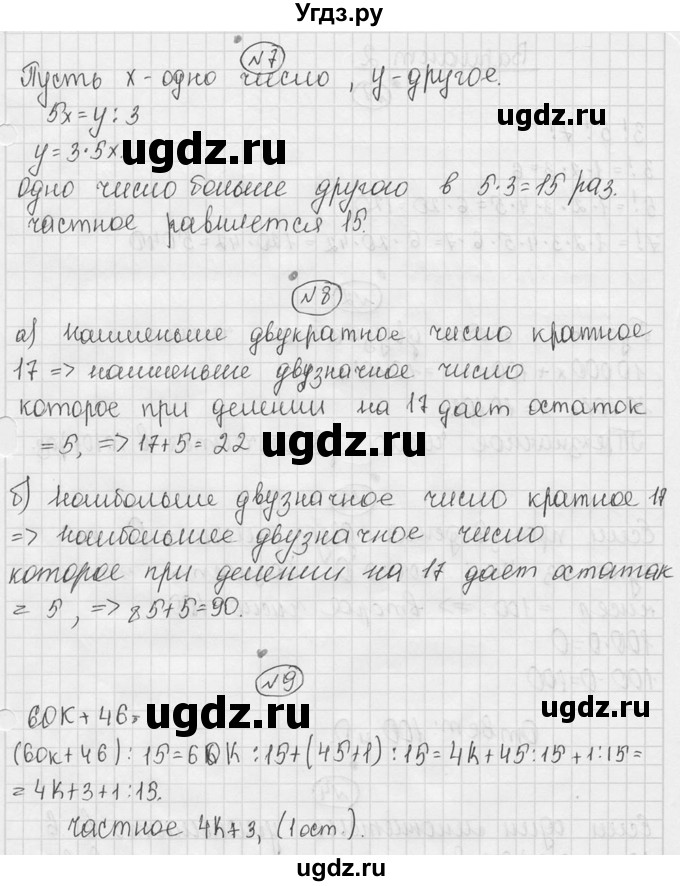 Угдз.ру
№7
Пусть x - одно число, y - другое.
5x = y : 3
y = 3·5x.
ugdz.ru ugdz.ru
Одно число больше другого в 5·3=15 раз.
частное равняется 15.
№8
а) наименьше двукратное число кратное
17 => наименьше двузначное число
которое при делении на 17 дает остаток
= 5, => 17+5= 22
ugdz.ru ugdz.ru
б) наибольше двузначное число кратное 17
=> наибольшее двузначное число
которое при делении на 17 дает остаток
= 5, => 85+5=90.
ugdz.ru ugdz.ru
№9
60k + 46.
(60k+46) : 15 = 60k : 15 + (45+1) : 15 = 4k + 45:15 + 1:15 =
= 4k+3+1:15.
ugdz.ru ugdz.ru
частное 4k+3, (1 ост.).
ugdz.ru